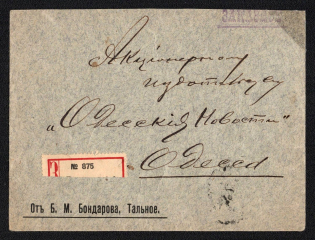 ЗАКАЗНОЕ
Акціонерному
"Одесскія Новости"
Одесса
№ 875
Отъ Б. М. Бондарова, Тальное.